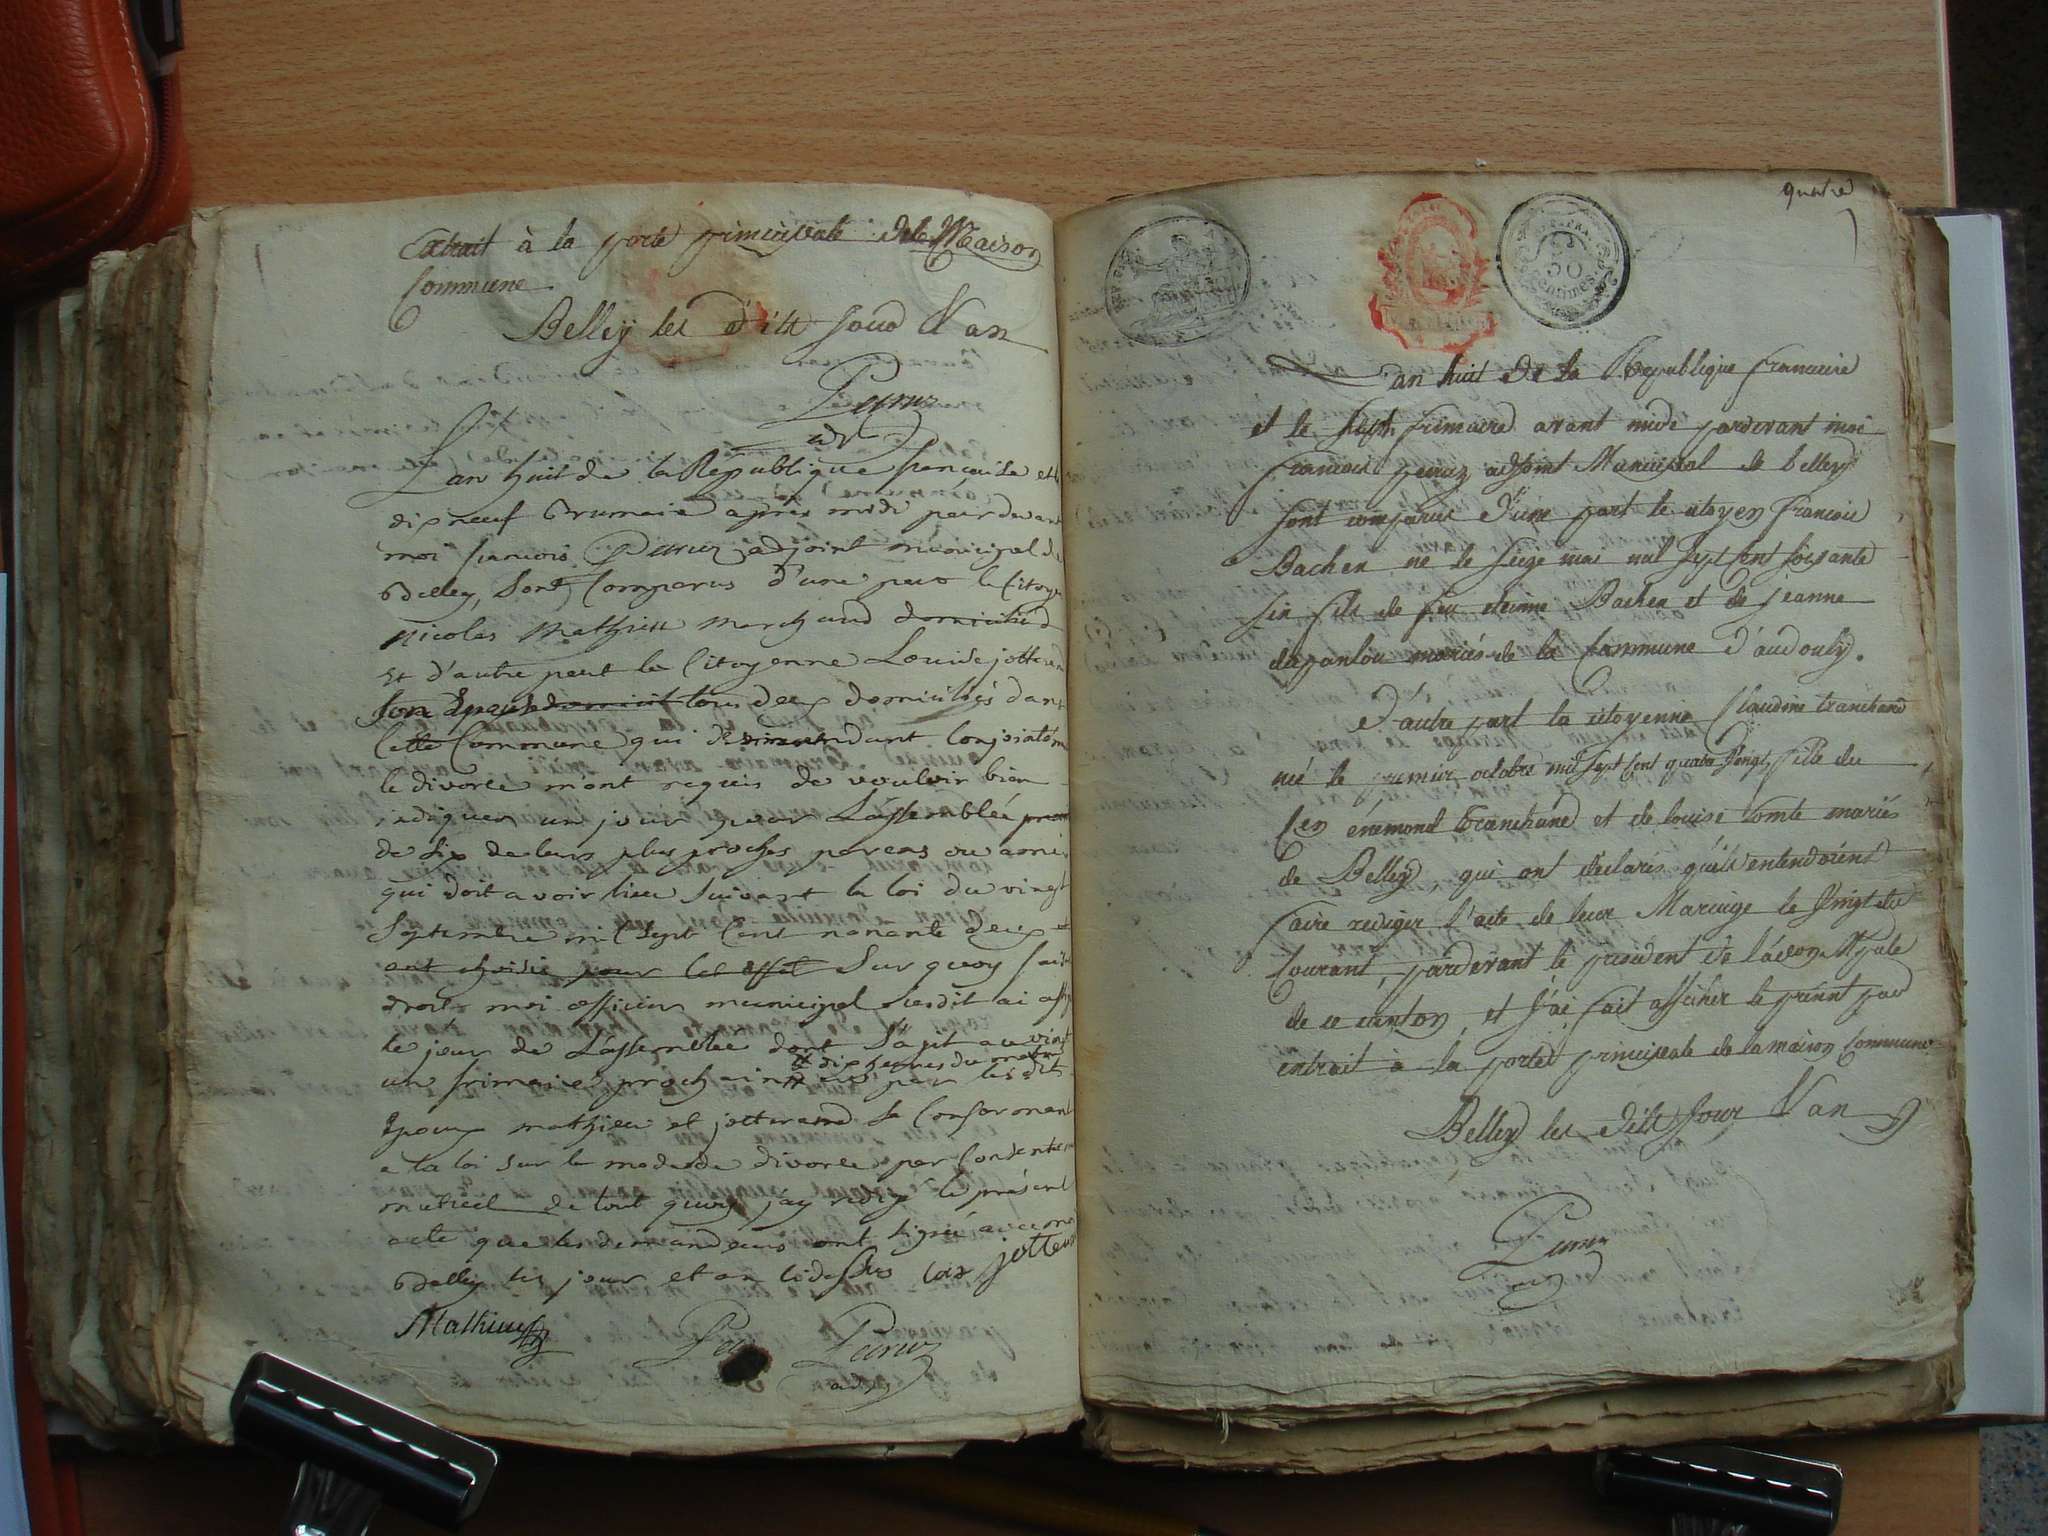 Extrait à la porte principale de la Maison
Commune
Belley les d'its jour & an
Peruz
adj
L'an huit de la Republique francaise et le
dix neuf Brumaire après midi par devant
moi francois Peruz adjoint municipal de
Belley, sont Comparus d'une part le Citoyen
Nicolas Mathieu marchand domicilié
Et d'autre part la Citoyenne Louise jotterand
son Epouse tous deux domiciliés dans
Cette Commune qui demandant Conjointem
le divorce mont requis de vouloir bien
indiquer un jour pour L'assemblée
de six de leurs plus proches parens ou amis
qui doit avoir lieu suivant la loi du vingt
septembre mil sept Cent nonante deux et
ont choisis pour cet effet sur quoy
moi officier municipal susdit ai
le jour de L'assemblée dont s'agit au vingt
dix heures du matin
un frimaire prochain par les dits
Epoux mathieu et jotterand se Conformant
a la loi sur le mode de divorce par Consentem
mutuel de tout quoy j'ay redigé le présent
acte que les demandeurs ont signé avec moi
Belley les jour et an cidessus Loise jotterand
Mathieu
Per Peruz
adj
quatre
50
Centimes
L'an huit de la Republique francaise
et le sept frimaire avant midi pardevant moi
francois peruz adjoint Municipal de belley
sont comparus d'une part le citoyen francois
Bachen né le seize mai mil sept cent soixante
six fils de feu etienne Bachen et de jeanne
dupanlou mariés de la Commune d'andouly.
D'autre part la citoyenne Claudine tranchand
née le premier octobre mil sept cent quatre vingt, fille du
feu énemond tranchand et de louise Comte mariés
de Belley, qui ont declarés qu'ils entendoient
faire rediger l'acte de leur Mariage le vingt du
Courant, pardevant le president de l'adon. Mpale
de ce canton, et j'ai fait afficher le présent par
extrait à la porte principale de la maison Commune
Belley les dits jour & an
Peruz
adj